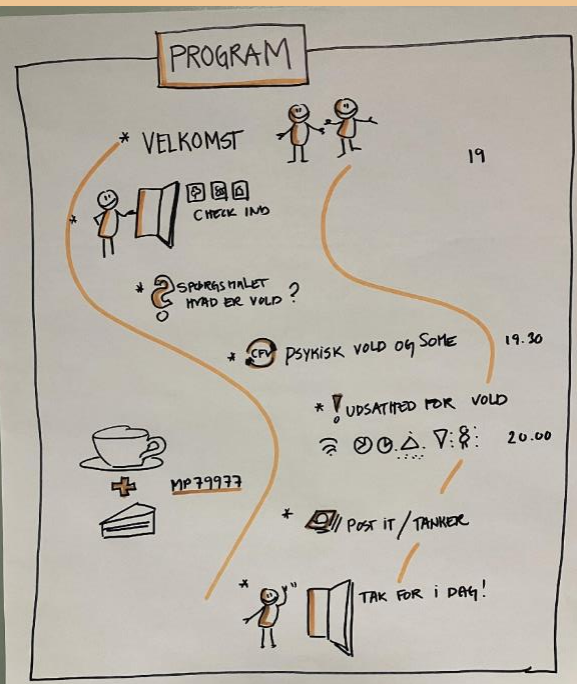 PROGRAM
* VELKOMST
19
* CHECK IND
* ? SPØRGSMALET
HVAD ER VOLD?
* CFV PSYKISK VOLD OG SOME
19.30
* ! UDSATHED FOR VOLD
20.00
+ MP79977
* POST IT / TANKER
* TAK FOR i DAG!